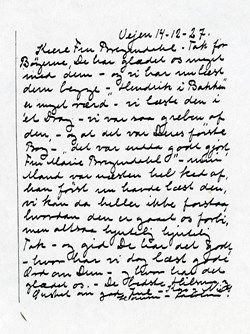 Vejen 14-12-27.
Kære Fru Bregendahl. Tak for
Bøgerne, De har glædet os meget
med dem - og vi har nu læst
dem begge - "Hendrik i Bakken"
er meget værd - vi læste den i
'et Drag - vi var saa greben af
den, - og at det var Deres første
Bog - "det var endda godt gjort
Fru Marie Bregendahl" - min
Mand var næsten helt ked af,
han først nu havde læst den,
vi kan da heller ikke forstaa
hvordan den er gaaet os forbi,
men altsaa hjertelig hjertelig
Tak - og gid De har det godt
- hvor har vi dog læst gode
Ord om Dem - og hvor har det
glædet os. - De bedste Hilsner
Ønsket om god Jul -